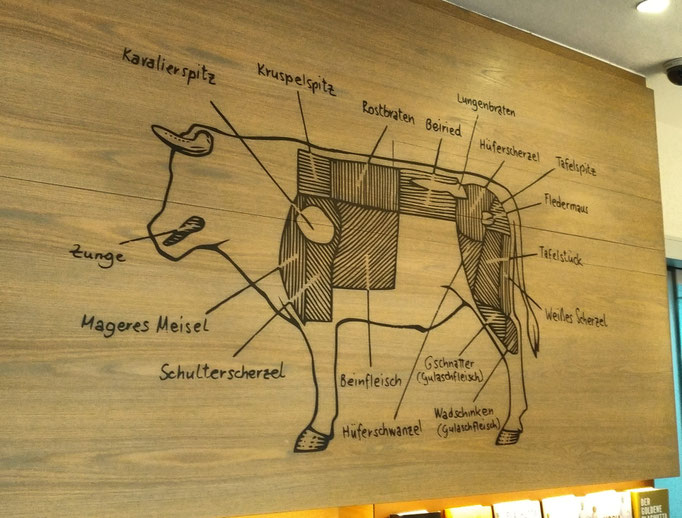 Kavalierspitz
Kruspelspitz
Rostbraten
Beiried
Lungenbraten
Hüferscherzel
Tafelspitz
Fledermaus
Zunge
Tafelstück
Mageres Meisel
Weißes Scherzel
Schulterscherzel
Beinfleisch
Gschnatter
(Gulaschfleisch)
Hüferschwanzel
Wadschinken
(Gulaschfleisch)
DER
GOLDENE